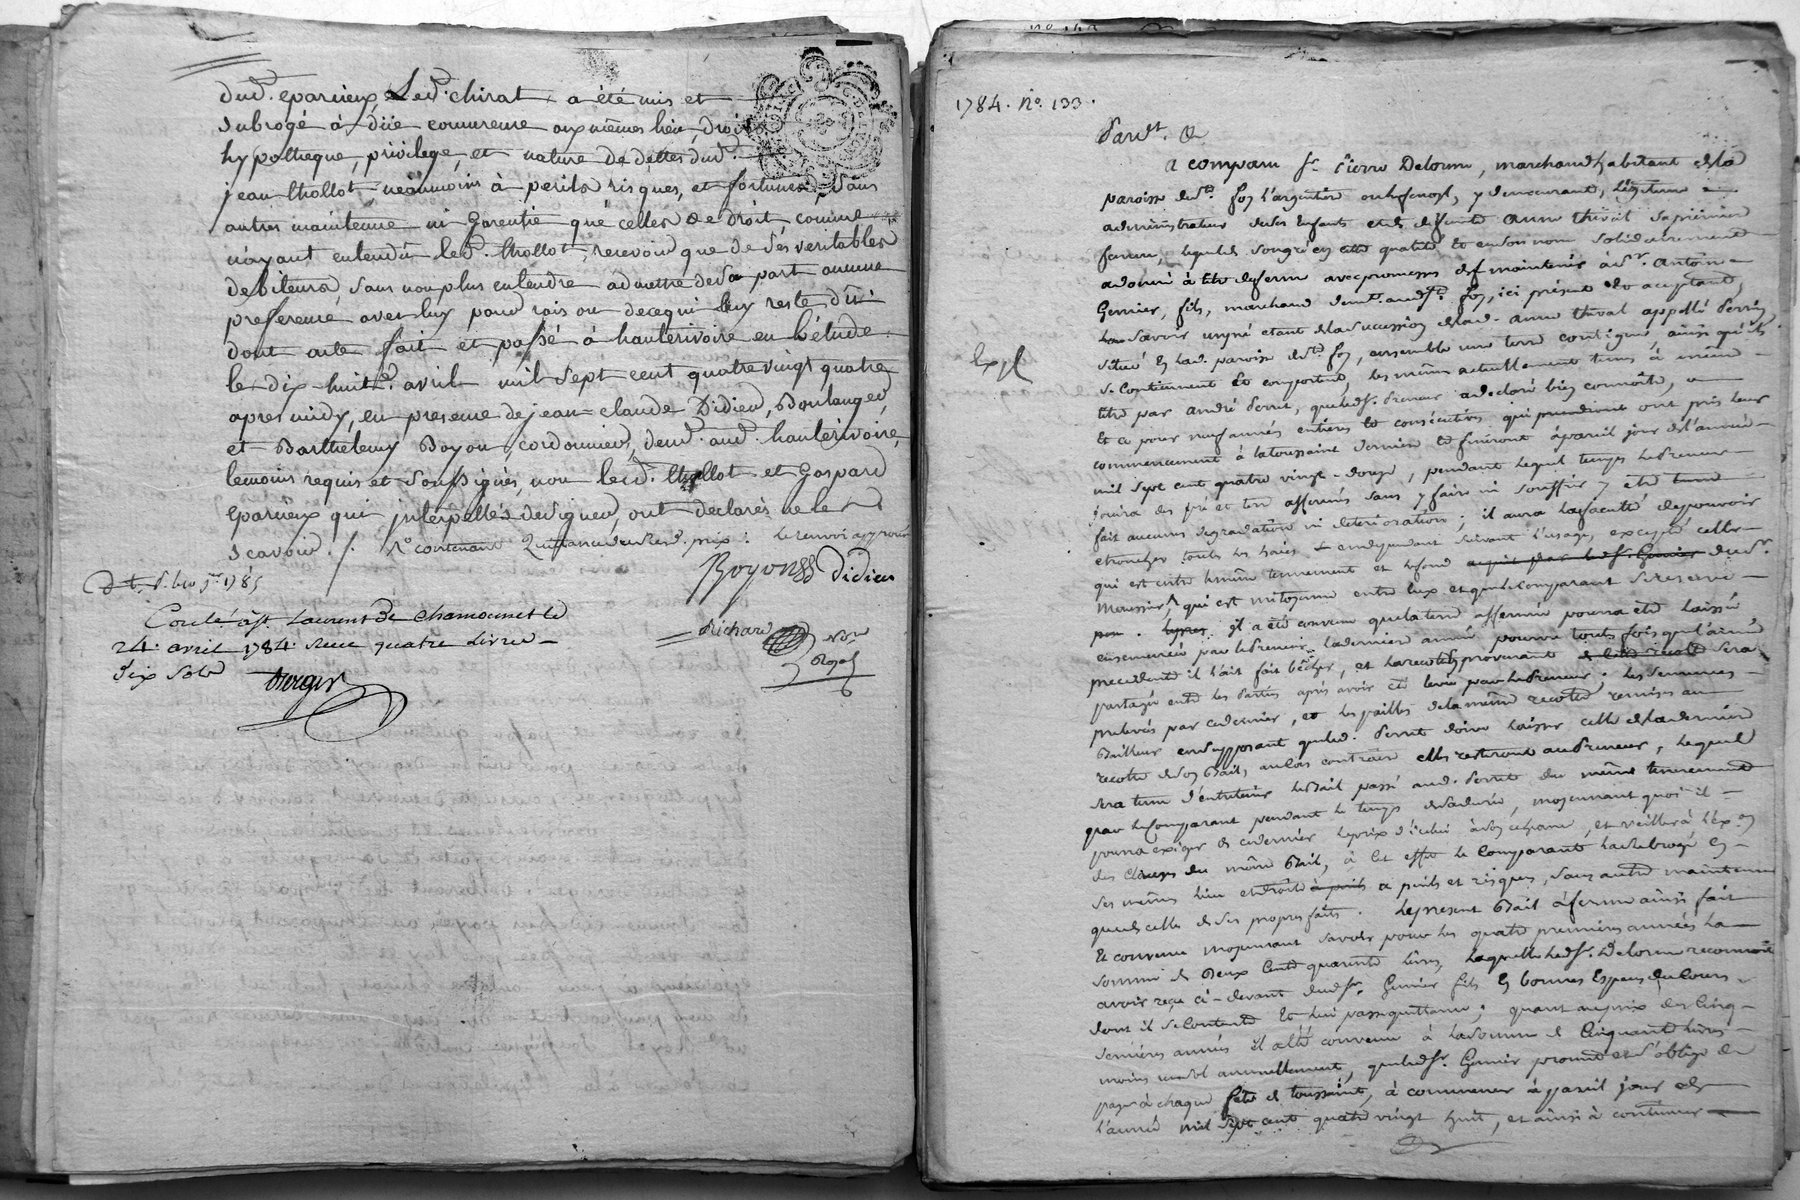 dud. eparcieux, Led. chirat a été mis et
subrogé à dûe concurence aux mêmes lieu, droits
hypotheque, privilege, et nature de dettes dud.
jean thollot, néanmoins à perils risques, et fortunes, sans
autres maintenue ni garentie que celles de droit, comme
n'ayant entendû led. thollot, recevoir que de ses veritables
debiteurs, sans non plus entendre admettre de sa part aucune
preference avec luy pour rais on de ce qui luy reste dû
dont acte fait et passé à hauterivoire en l'étude
le dix-huit avril mil sept cent quatre vingt quatre
apres midy, en presence de jean-claude Didier, Boulanger,
et Barthelemy Boyon, cordonnier, demt. aud. hauterivoire,
temoins requis et soussignés, non led. thollot et Gaspard
Eparcieux qui interpellés de signer, ont declarés ne le
scavoir. le renvoi approuvé
Boyon Didier
1785
Conlé à St Laurent de Chamousset le
24. avril 1784 Reçu quatre livres
dix sols
Berger
Richard
Royal
1784. No. 133.
Pardt.
a comparu Sr. Pierre Delorme, marchand habitant de la
paroisse de Ste. foy l'argentière, y demeurant, légitime
administrateur de ses Enfants et de defunte anne thival sa première
femme, lequel de son gré en cette qualité et en son nom solidairement
a donné à titre de ferme avec promesse de maintenir à Sr. Antoine
Grenier, fils, marchand demt. aud. Ste. foy, ici présent et acceptant,
Savoir un pré étant de la succession de lad. anne thival appellé
situé en lad. paroisse de Ste. foy, ensemble une terre contigue, ainsi qu'ils
se contiennent et comportent, les mêmes actuellement tenus à même
titre par andré Perret, que led. Sr. Preneur a declaré bien connoitre,
Et ce pour neuf années entieres et consécutives qui prendront ont pris leur
commencement à la toussaint derniere et finiront à pareil jour de l'année
mil sept cent quatre vingt-douze, pendant lequel temps le Preneur
jouira des pré et terre affermés sans y faire ni souffrir y etre
fait aucunes degradations ni deteriorations; il aura la faculté de pouvoir
ebrancher toutes les haies en dependant suivant l'usage, excepté celle
qui est entre le même tennement et le fond dud. Sr.
Moussier, qui est mitoyenne entre eux et que le comparant se reserve
il a été convenu que la terre affermée pourra etre laissée
ensemencée par le Preneur la derniere année pourvu toutes fois que l'année
precedente il l'ait fait bécher, et la recolte provenant sera
partagée entre les Parties après avoir été levée par le Preneur; les semences
prelevées par ce dernier, et les pailles de la même recolte remises au
Bailleur en supposant que led. Perret doive laisser celle de la derniere
recolte de son Bail, au cas contraire elles resteront au Preneur, lequel
sera tenu d'entretenir le Bail passé aud. Perret du même tennement
par le Comparant pendant le temps de sa durée, moyennant quoi il
pourra exiger de ce dernier le prix d'icelui à son echeance, et veiller à l'exon
des Clauses du même Bail, à cet effet le Comparant l'a subrogé en
ses mêmes lieu et droits à perils et risques, sans autre maintenue
que celle de ses propres faits. Le present Bail à ferme ainsi fait
Et convenu moyennant savoir pour les quatre premieres années la
somme de Deux Cents quarante livres, laquelle led. Sr. Delorme reconnoit
avoir reçu ci-devant dud. Sr. Grenier fils en bonnes Especes du Cours,
dont il se Contente Et lui passe quittance; quant au prix des Cinq
dernieres années il a été convenu à la somme de Cinquante livres
annuellement, que led. Sr. Grenier promet et s'oblige de
payer à chaque fête de toussaint, à commencer à pareil jour de
l'année mil sept cent quatre vingt huit, et ainsi à continuer